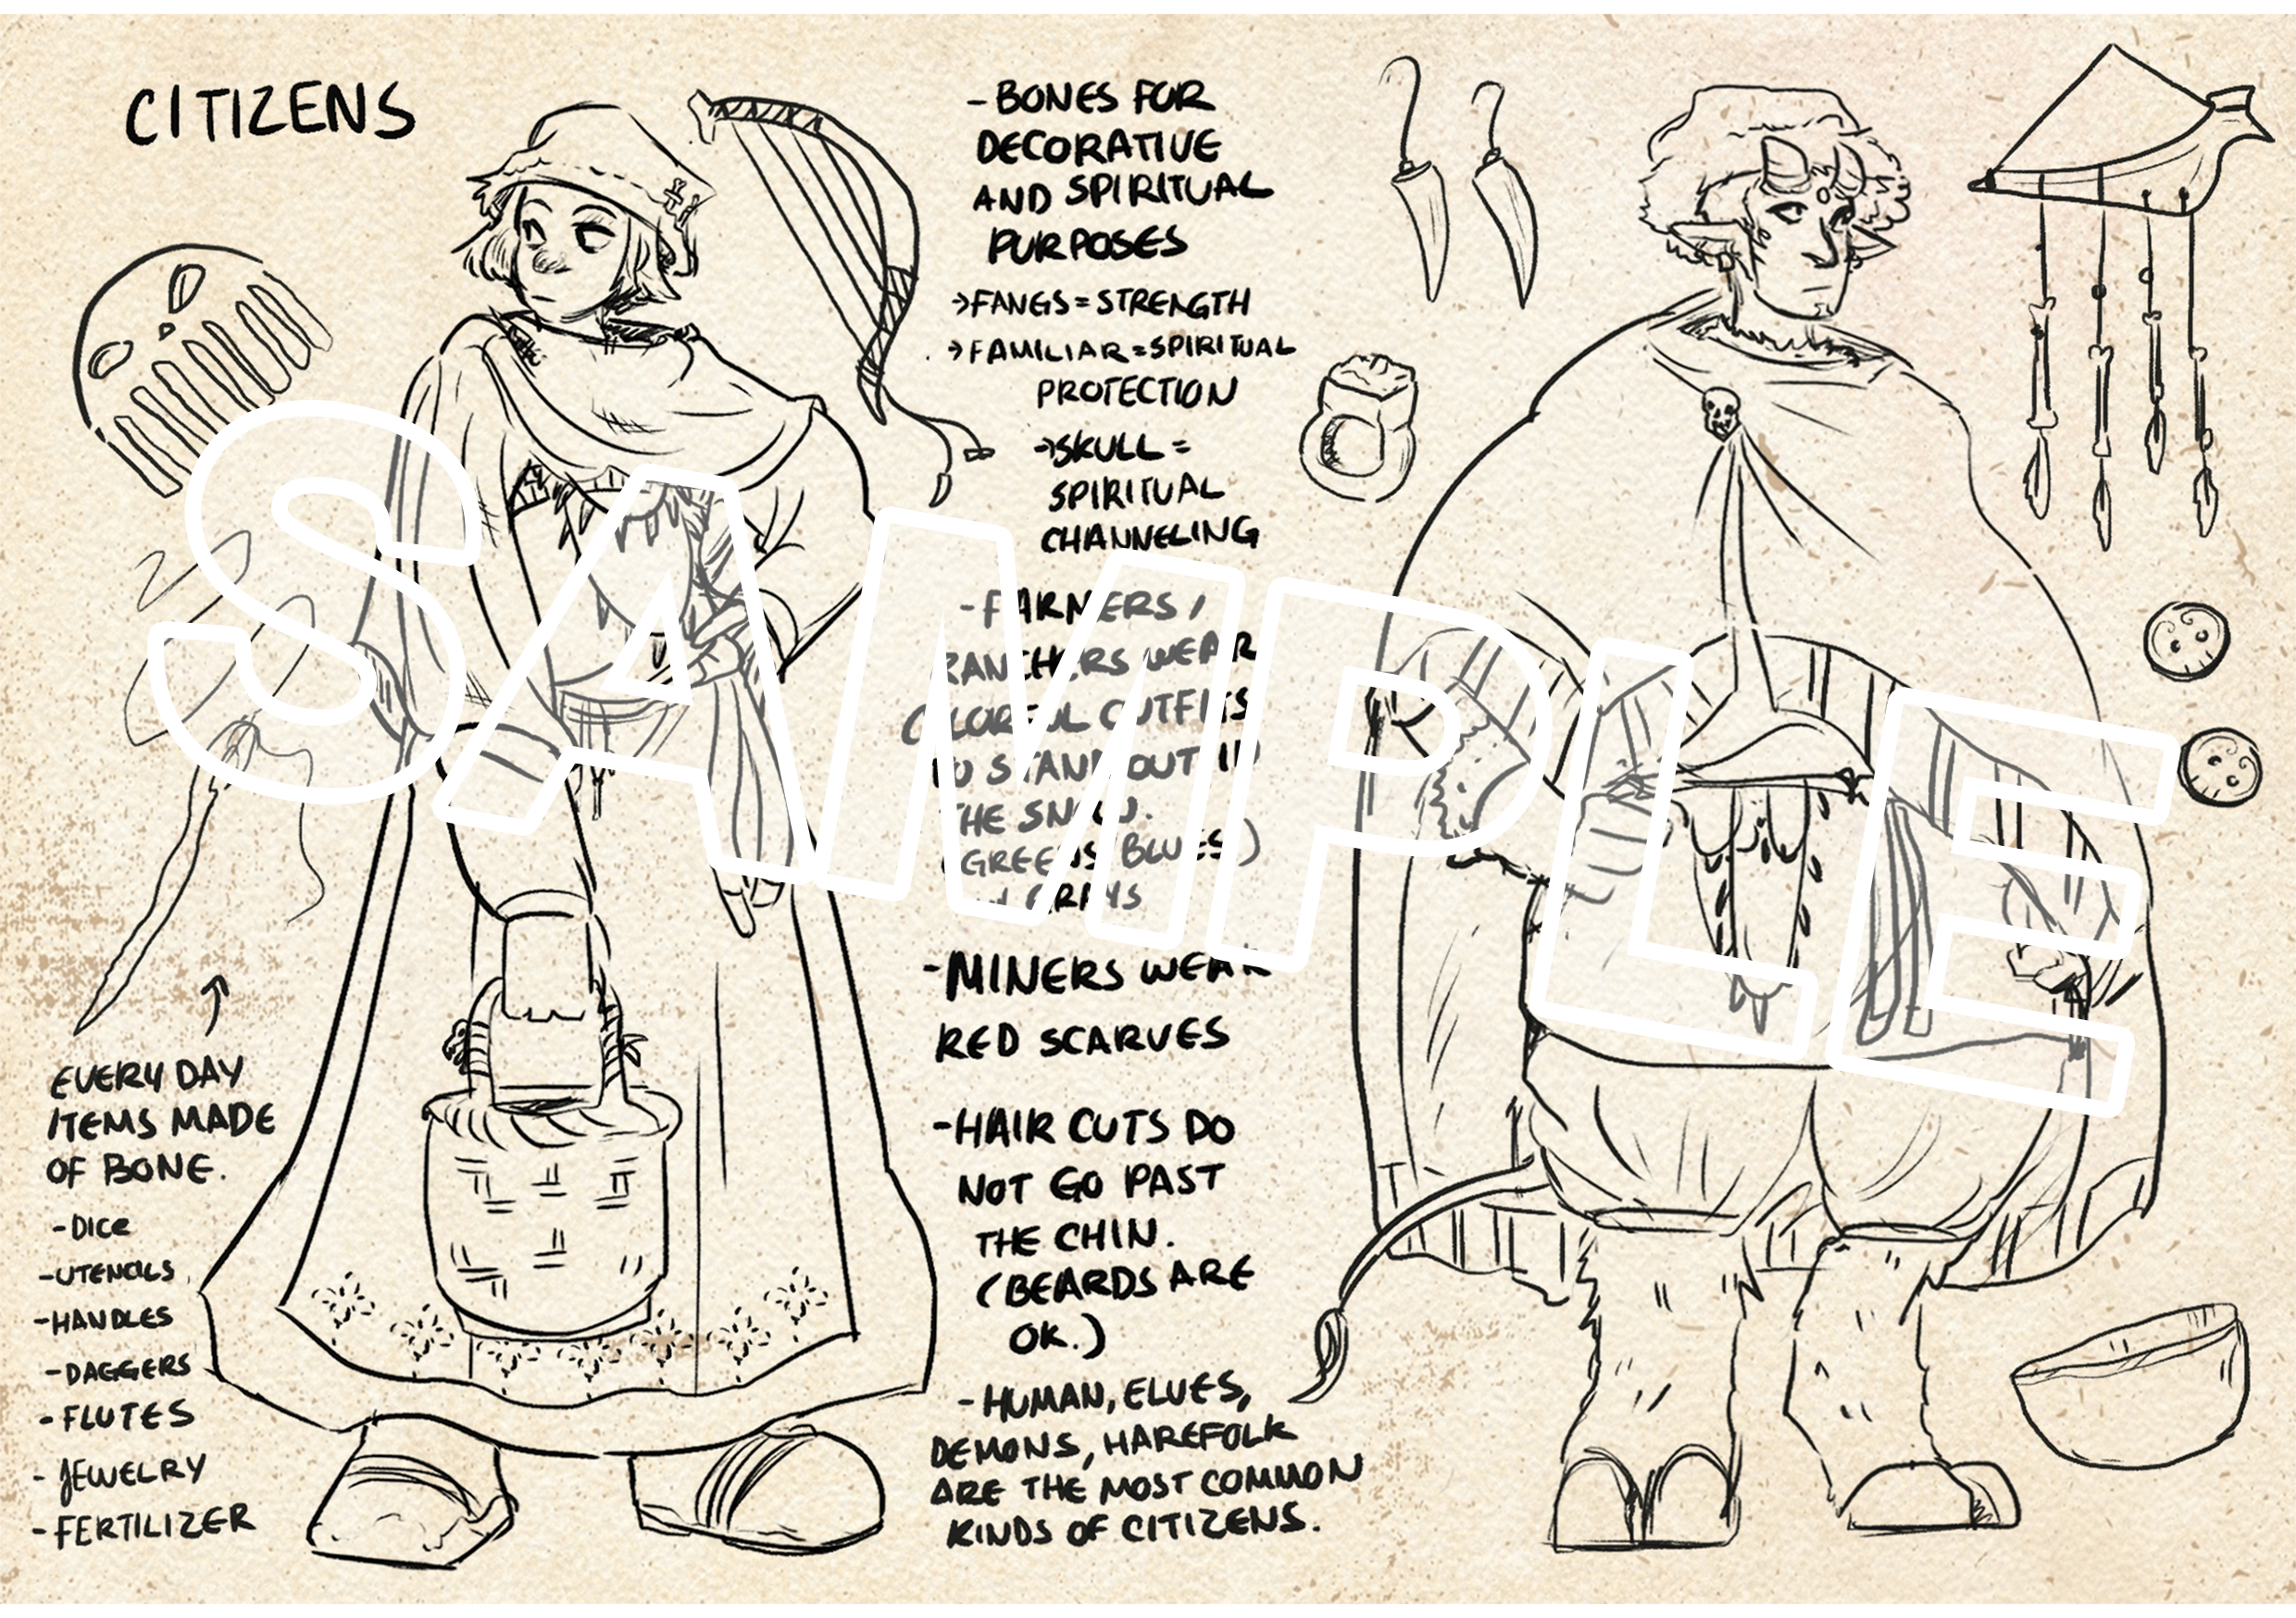 CITIZENS
EVERY DAY
ITEMS MADE
OF BONE.
-DICE
-UTENCILS
-HANDLES
-DAGGERS
-FLUTES
-JEWELRY
-FERTILIZER
-BONES FOR
DECORATIVE
AND SPIRITUAL
PURPOSES
→FANGS=STRENGTH
→FAMILIAR=SPIRITUAL
PROTECTION
→SKULL =
SPIRITUAL
CHANNELING
-FARMERS/
RANCHERS WEAR
COLORFUL OUTFITS
TO STAND OUT IN
THE SNOW.
(GREENS, BLUES)
GRAYS
-MINERS WEAR
RED SCARVES
-HAIR CUTS DO
NOT GO PAST
THE CHIN.
(BEARDS ARE
OK.)
-HUMAN, ELVES,
DEMONS, HAREFOLK
ARE THE MOST COMMON
KINDS OF CITIZENS.
SAMPLE